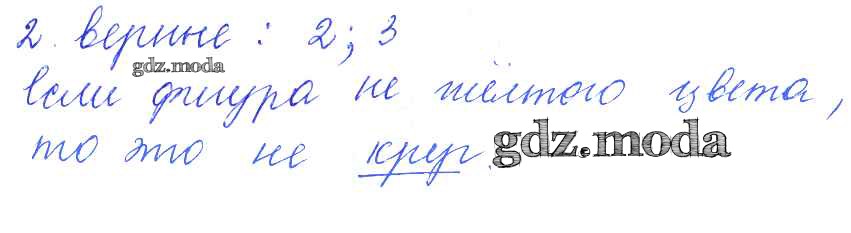 2. верные : 2; 3
gdz.moda
Если фигура не жёлтого цвета,
то это не круг gdz.moda